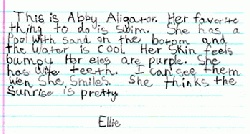 This is Abby Aligator. Her favorite
thing to do is swim. She has a
pool with sand on the bottom and
the water is cool. Her skin feels
bumpy. Her eies are purple. She
has wite teeth. I can see them
wen she smiles. She thinks the
sunrise is pretty.
Ellie